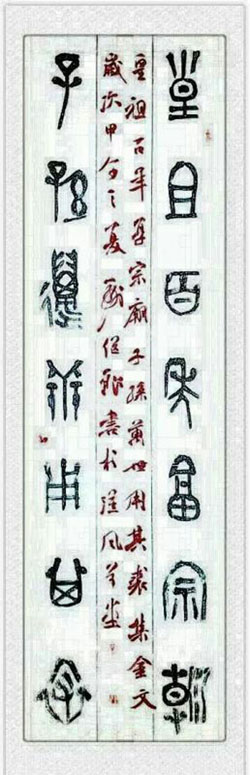 皇且百年尊宗朝
皇祖百年尊宗廟子孫萬世用其求集金文
歲次甲午之夏 書於 風草堂
子孫邁世用其求